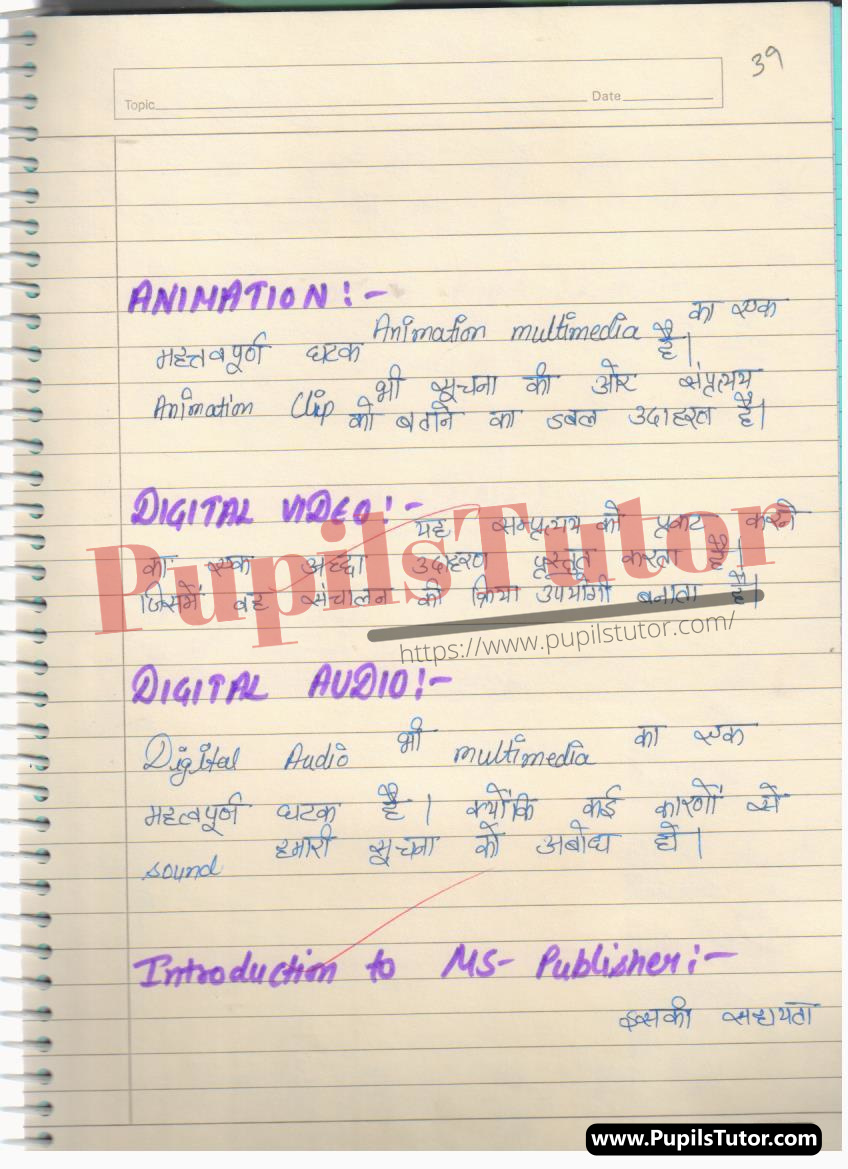 39
Topic Date
ANIMATION :-
Animation multimedia का एक
महत्तवपूर्ण घटक है।
Animation Clip भी सूचना की और संप्रत्यय
को बताने का डबल उदाहरण है।
DIGITAL VIDEO :-
यह सम्प्रत्यय को प्रकट करने
का एक अहद्दा उदाहरण प्रस्तूत करता है।
जिसमें वह संचालन की क्रिया उपयोगी बनाता है।
PupilsTutor
https://www.pupilstutor.com/
DIGITAL AUDIO :-
Digital Audio भी multimedia का एक
महत्वपूर्ण घटक है। क्योंकि कई कारणों से
sound हमारी सूचना को अबोध हो।
Introduction to MS- Publisher :-
इसकी सहायता
www.PupilsTutor.com